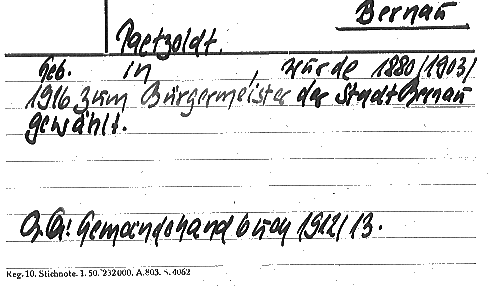 Bernau
Paetzoldt.
Geb. in , wurde 1880/1903/
1916 zum Bürgermeister der Stadt Bernau
gewählt.
Gemeindehandbuch 1912/13.
Reg. 10. Stichnote. 1. 50. 232000. A.803. S. 4062